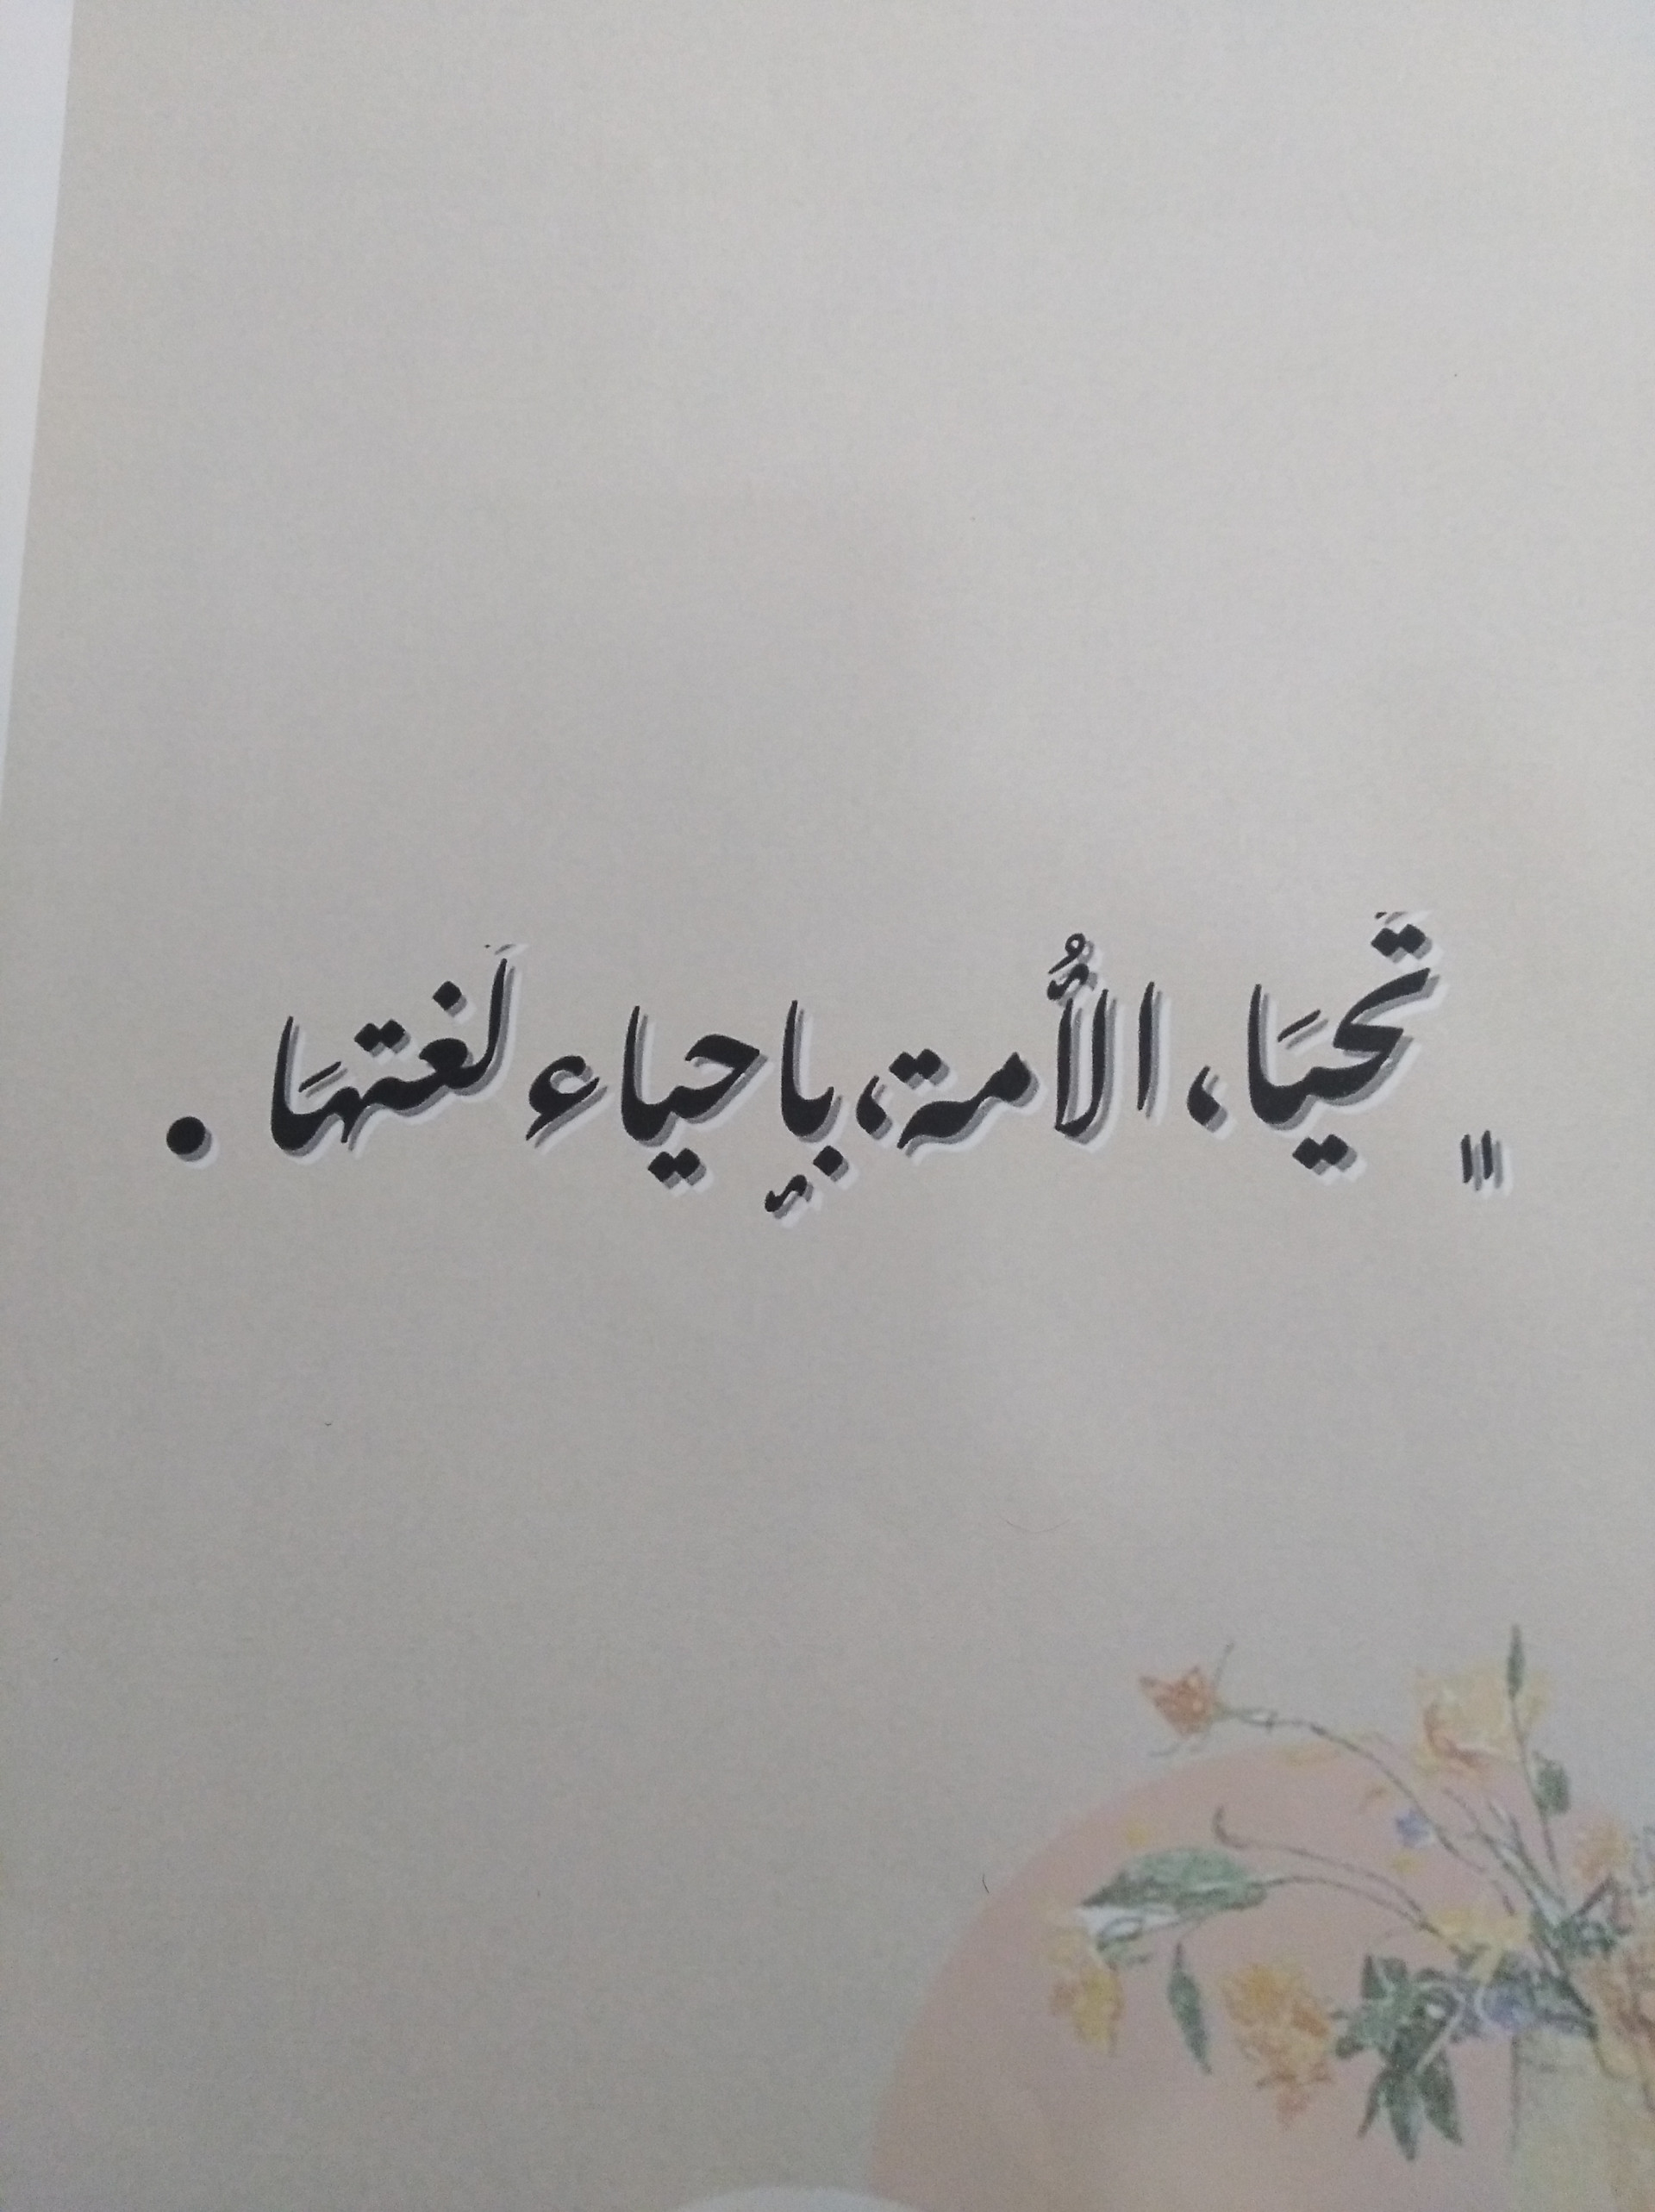 "تَحيَا، الأُمة، بإِحياء لَغتهَا .